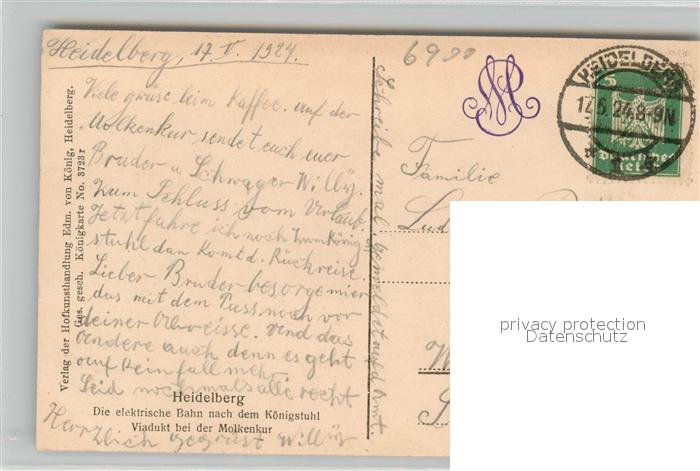 Heidelberg, 17. V. 1924.
6900
Viele grüse beim Kaffee. auf der
Molkenkur sendet euch euer
Bruder u Schwager Willÿ.
Zum Schluss vom Urlaub.
Jetzt fahre ich noch zum König
stuhl dan komt d. Rückreise.
Lieber Bruder besorge mier
das mit dem Pass noch vor
deiner Abreisse. und das
andere auch denn es geht
auf kein fall mehr.
Seid nochmals alle recht
Herzlich gegrüst Willÿ
Schreibe mal.
Familie
Heidelberg
Die elektrische Bahn nach dem Königstuhl
Viadukt bei der Molkenkur
Verlag der Hofkunsthandlung Edm. von König, Heidelberg.
Ges. gesch. Königkarte No. 3723 r
HEIDELBERG
17.5.24.8-9N
5
Deutsches
Reich
privacy protection
Datenschutz